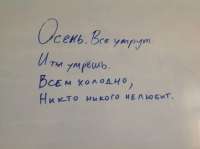 Осень. Все умрут
И ты умрёшь.
Всем холодно,
Никто никого не любит.